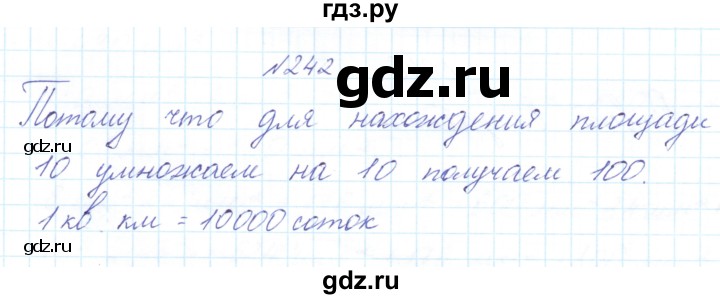 гдз.ру
№242
gdz.ru
Потому что для нахождения площади
gdz.ru
gdz.ru
10 умножаем на 10 получаем 100.
1 кв. км = 10000 соток
gdz.ru
gdz.ru
gdz.ru